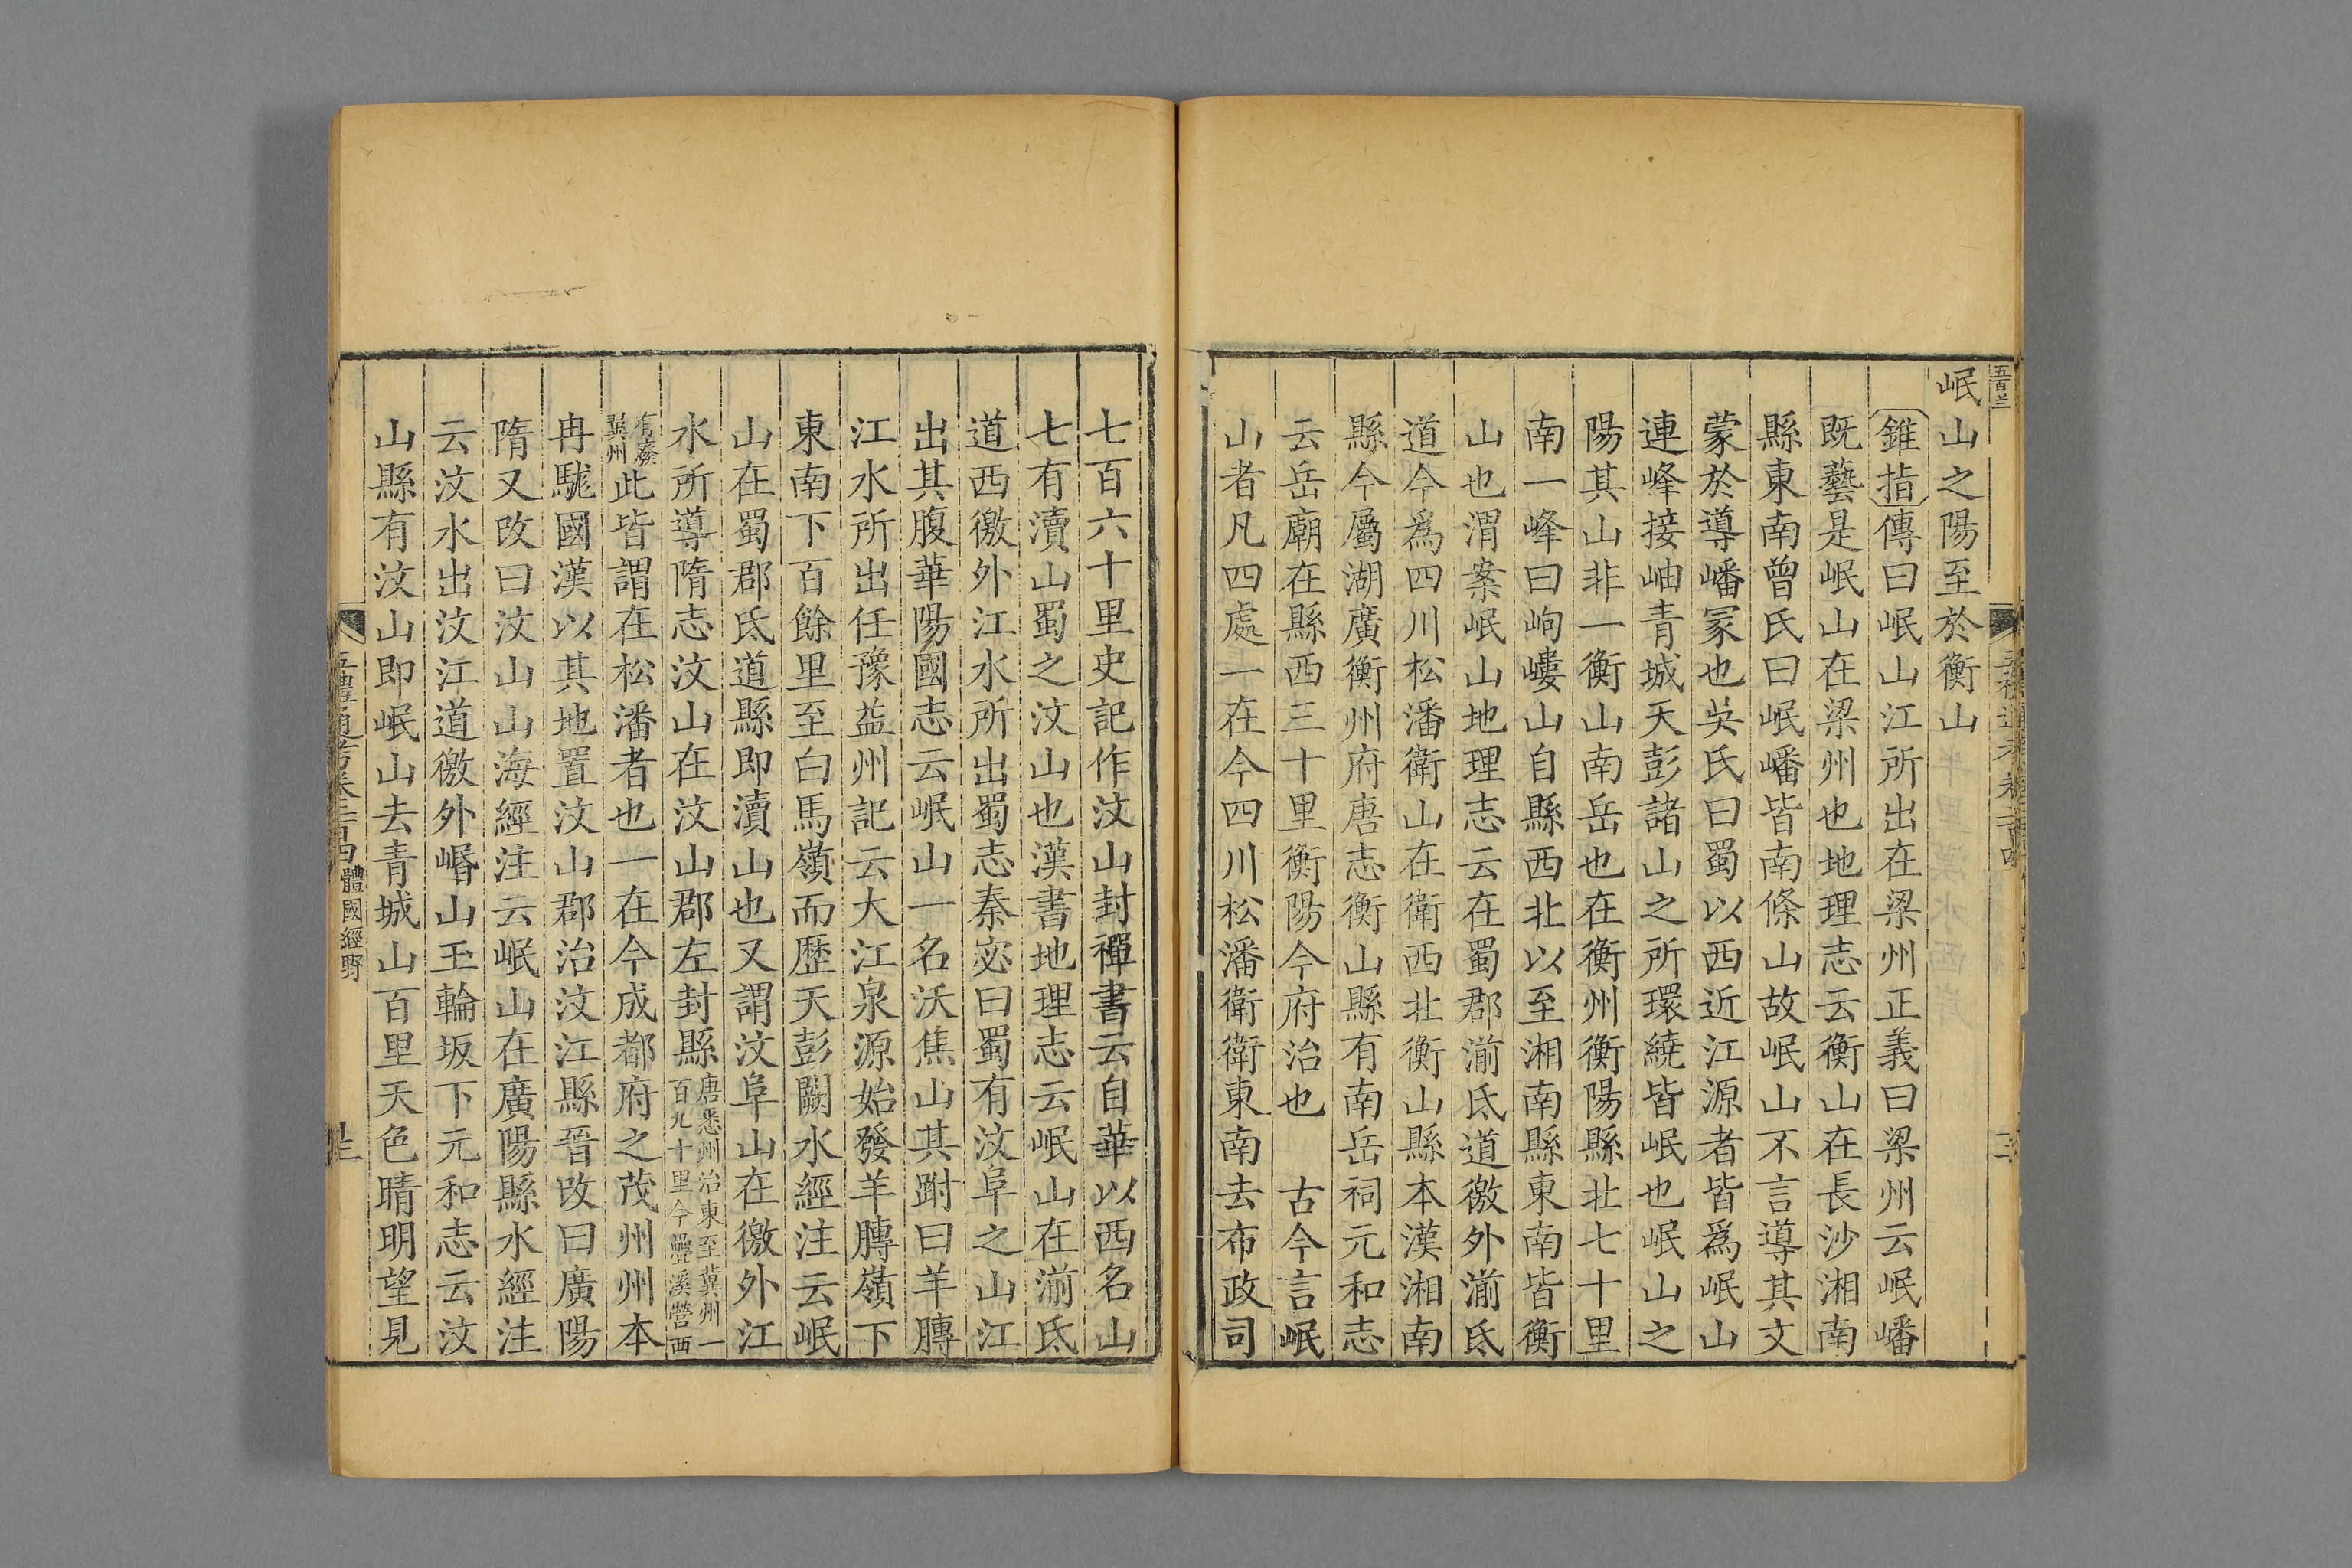 岷山之陽至於衡山
錐指傳曰岷山江所出在梁州正義曰梁州云岷嶓
既藝是岷山在梁州也地理志云衡山在長沙湘南
縣東南曾氏曰岷嶓皆南條山故岷山不言導其文
蒙於導嶓冢也吳氏曰蜀以西近江源者皆爲岷山
連峰接岫青城天彭諸山之所環繞皆岷也岷山之
陽其山非一衡山南岳也在衡州衡陽縣北七十里
南一峰曰岣嶁山自縣西北以至湘南縣東南皆衡
山也渭案岷山地理志云在蜀郡湔氐道徼外湔氐
道今爲四川松潘衛山在衛西北衡山縣本漢湘南
縣今屬湖廣衡州府唐志衡山縣有南岳祠元和志
云岳廟在縣西三十里衡陽今府治也　古今言岷
山者凡四處一在今四川松潘衛衛東南去布政司
七百六十里史記作汶山封禪書云自華以西名山
七有瀆山蜀之汶山也漢書地理志云岷山在湔氐
道西徼外江水所出蜀志秦宓曰蜀有汶阜之山江
出其腹華陽國志云岷山一名沃焦山其跗曰羊膊
江水所出任豫益州記云大江泉源始發羊膊嶺下
東南下百餘里至白馬嶺而歷天彭闕水經注云岷
山在蜀郡氐道縣即瀆山也又謂汶阜山在徼外江
水所導隋志汶山在汶山郡左封縣唐悉州治東至冀州一
百九十里今疊溪營西
有廢
冀州此皆謂在松潘者也一在今成都府之茂州州本
冉駹國漢以其地置汶山郡治汶江縣晉改曰廣陽
隋又改曰汶山山海經注云岷山在廣陽縣水經注
云汶水出汶江道徼外㟭山玉輪坂下元和志云汶
山縣有汶山即岷山去青城山百里天色晴明望見
體國經野